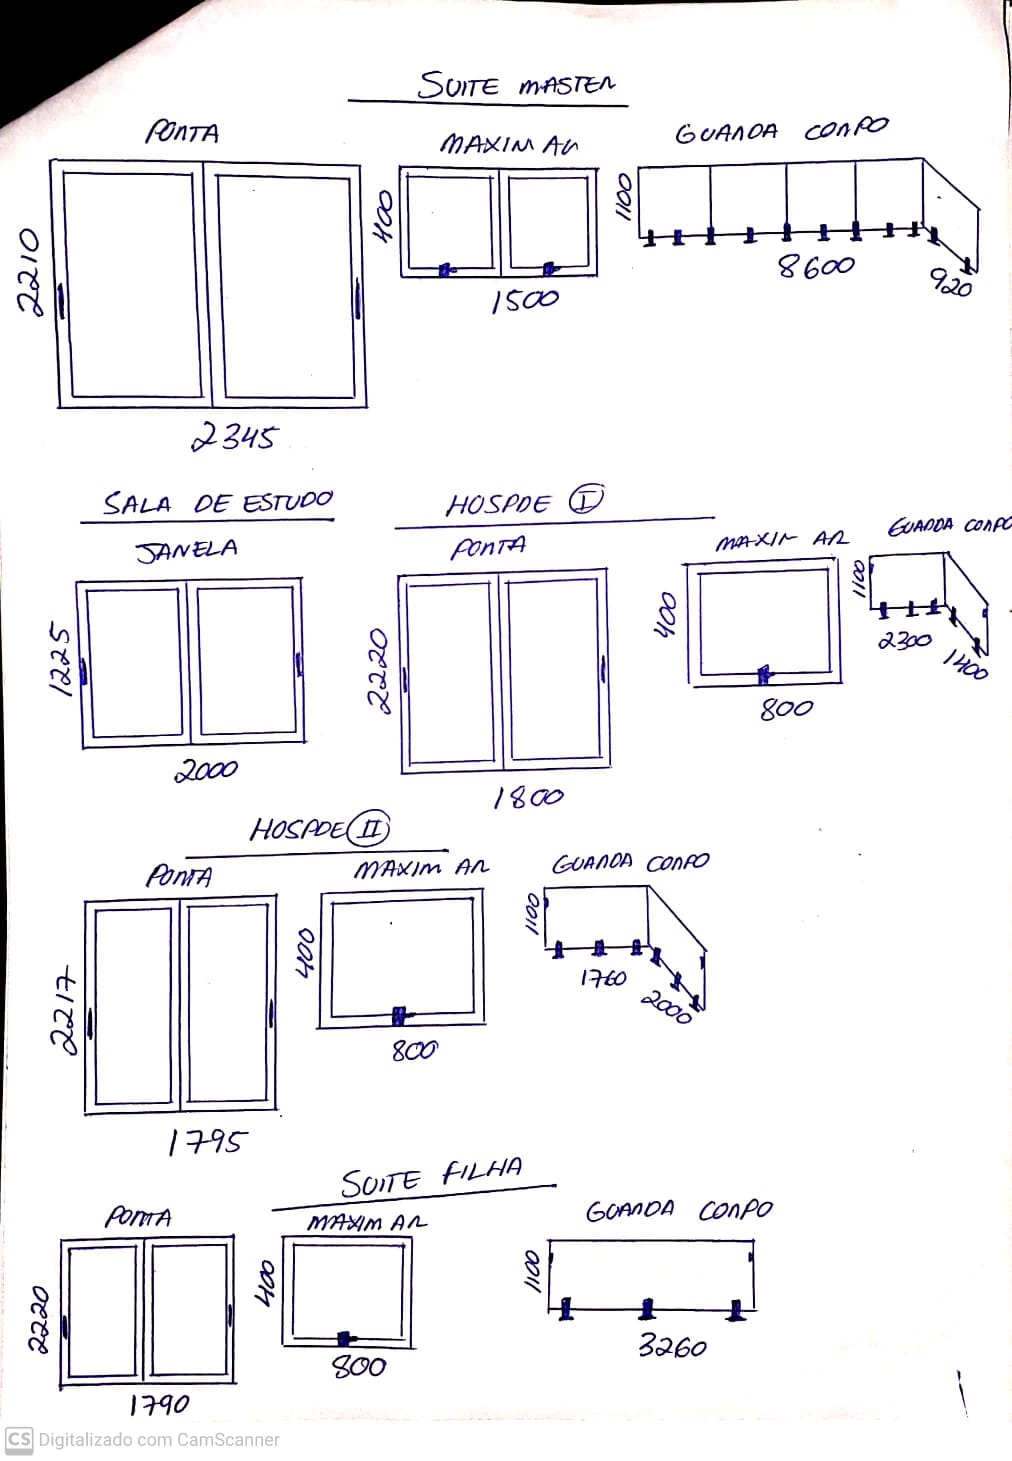 SUITE MASTER
PORTA
MAXIM AR
GUARDA CORPO
2210
400
1100
2345
1500
8600
920
SALA DE ESTUDO
JANELA
1225
2000
HOSPDE I
PORTA
MAXIM AR
GUARDA CORPO
2220
400
1100
1800
800
2300
1400
HOSPDE II
PORTA
MAXIM AR
GUARDA CORPO
2217
400
1100
1795
800
1760
2000
SUITE FILHA
PORTA
MAXIM AR
GUARDA CORPO
2220
400
1100
1790
800
3260
CS Digitalizado com CamScanner